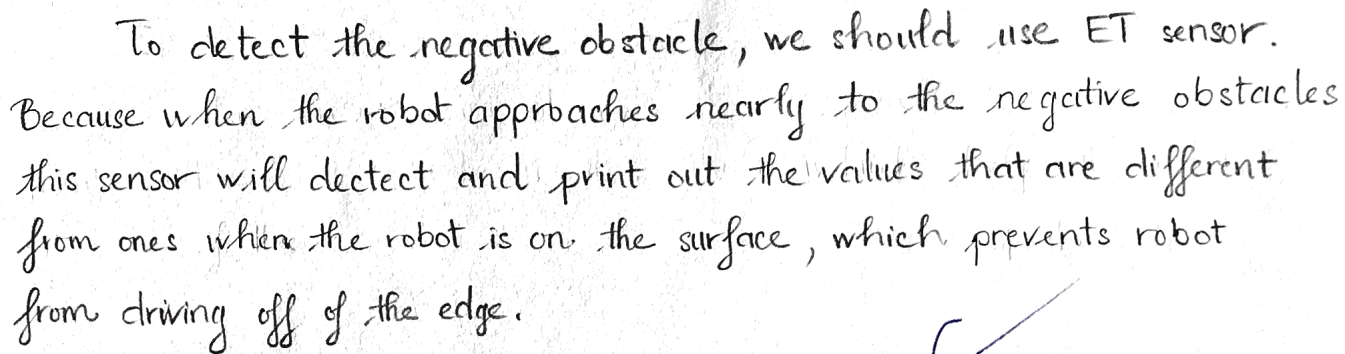 To detect the negative obstacle, we should use ET sensor.
Because when the robot approaches nearly to the negative obstacles
this sensor will dectect and print out the values that are different
from ones when the robot is on the surface, which prevents robot
from driving off of the edge.